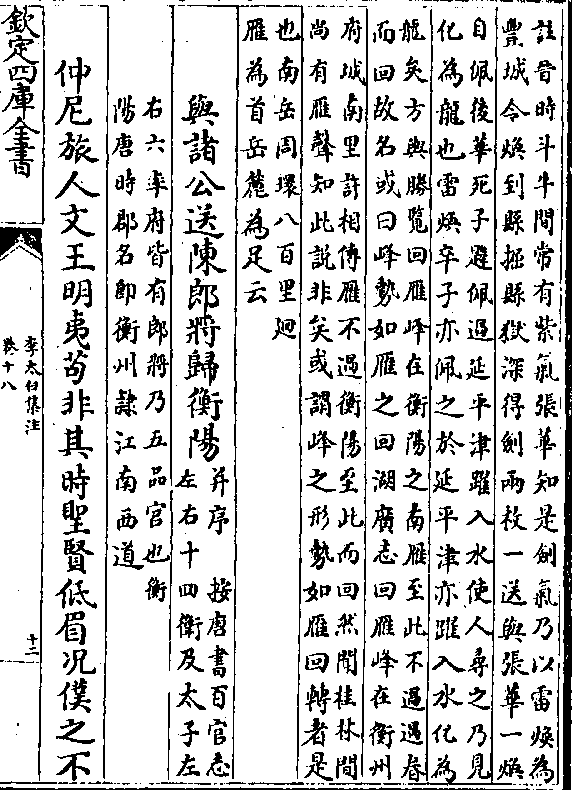 註晉時斗牛間常有紫氣張華知是劍氣乃以雷煥為
豐城令煥到縣掘縣獄深得劍兩枚一送與張華一煥
自佩後華死子韙佩過延平津躍入水使人尋之乃見
化為龍也雷煥卒子亦佩之於延平津亦躍入水化為
龍矣方輿勝覽回雁峰在衡陽之南雁至此不過遇春
而回故名或曰峰勢如雁之回湖廣志回雁峰在衡州
府城南里許相傳雁不過衡陽至此而回然聞桂林間
尚有雁聲知此說非矣或謂峰之形勢如雁回轉者是
也南岳周環八百里廻
雁為首岳麓為足云
與諸公送陳郎將歸衡陽
并序 按唐書百官志
左右十四衛及太子左
右六率府皆有郎將乃五品官也衡
陽唐時郡名即衡州隸江南西道
仲尼旅人文王明夷苟非其時聖賢低眉况僕之不
欽定四庫全書
李太白集注
卷十八
十二